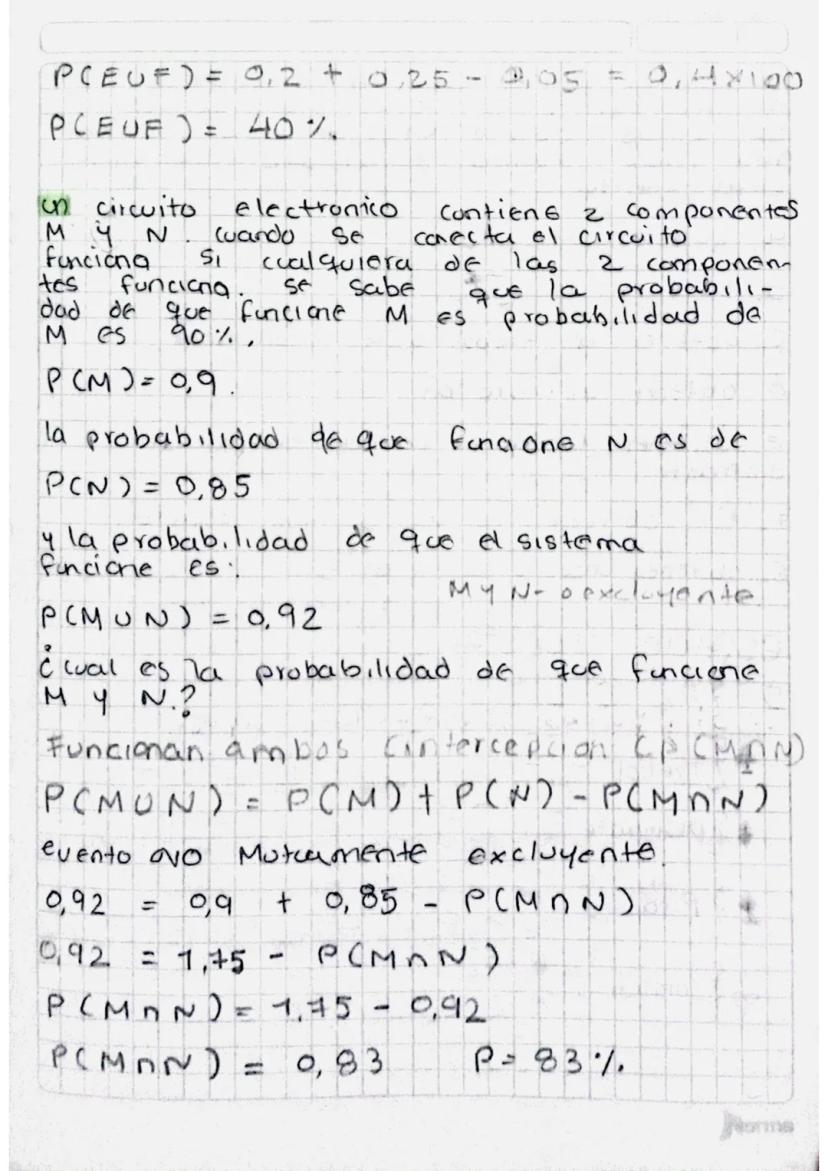 P(EUF) = 0,2 + 0,25 - 0,05 = 0,4x100
P(EUF) = 40%.
un circuito electronico contiene 2 componentes
M y N. cuando se conecta el circuito
funciona si cualquiera de las 2 componen-
tes funciona. se sabe que la probabili-
dad de que funcione M es probabilidad de
M es 90%,
P(M) = 0,9.
la probabilidad de que funcione N es de
P(N) = 0,85
y la probabilidad de que el sistema
funcione es:
M y N- o excluyente
P(M ∪ N) = 0,92
¿cual es la probabilidad de que funcione
M y N.?
Funcionan ambos (intercepcion (P(M∩N)
P(M∪N) = P(M) + P(N) - P(M∩N)
evento no Mutuamente excluyente.
0,92 = 0,9 + 0,85 - P(M∩N)
0,92 = 1,75 - P(M∩N)
P(M∩N) = 1,75 - 0,92
P(M∩N) = 0,83 P= 83%.
Norma